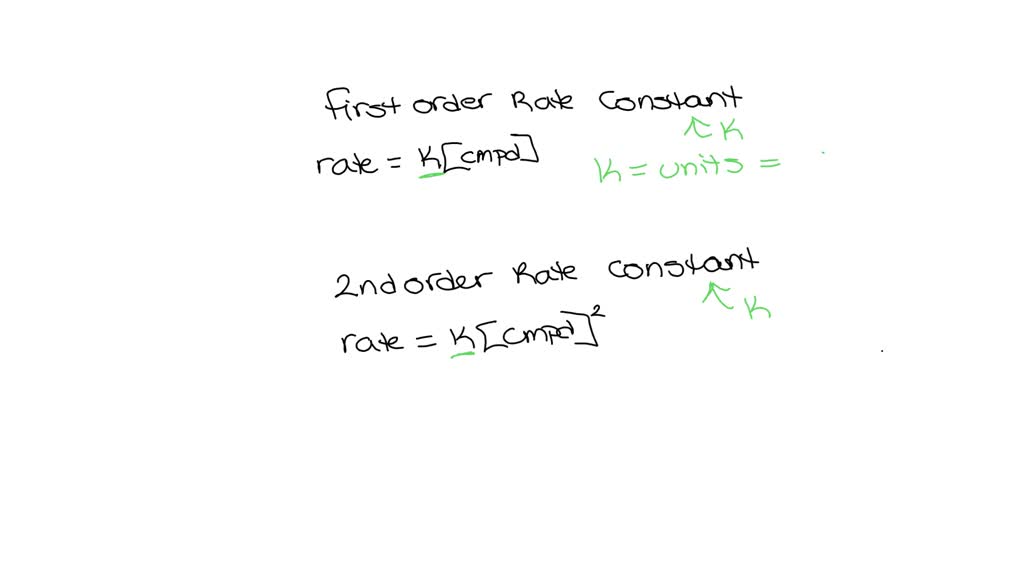 first order Rate Constant
↖ K
rate = K[cmpd]
K = units =
2nd order Rate constant
↖ K
rate = K[cmpd]²